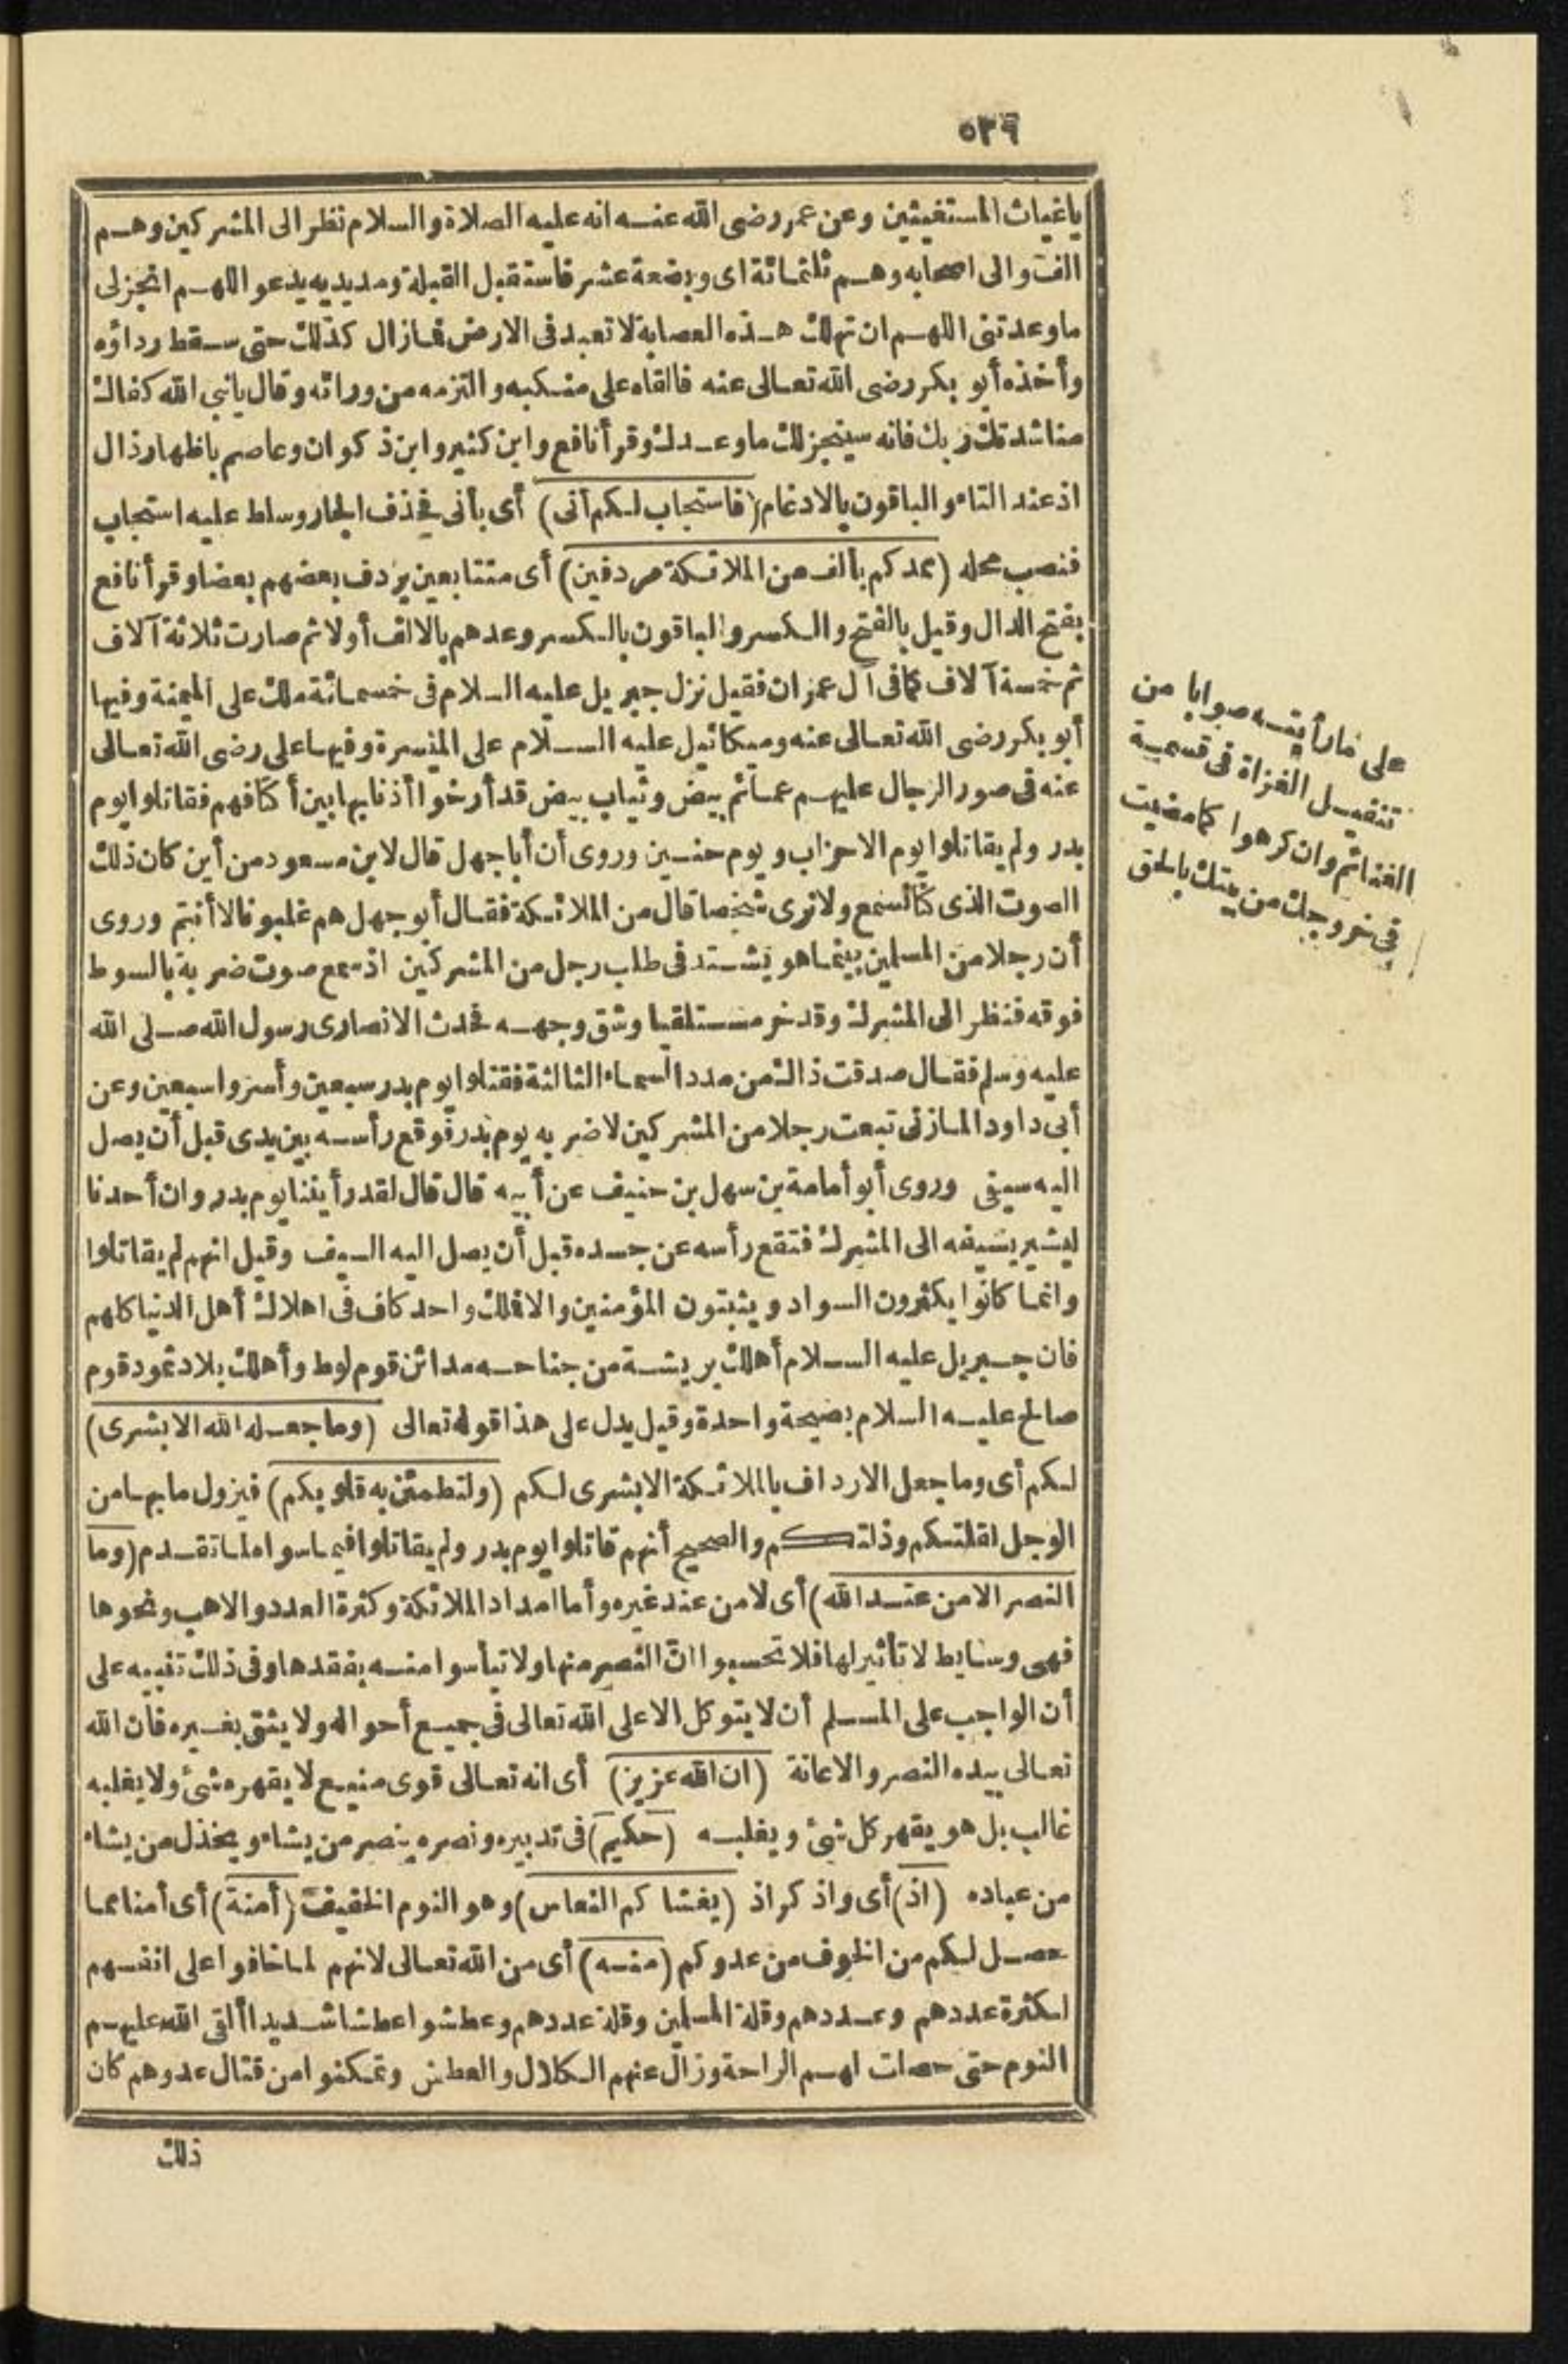 ٥٣٦
ياغياث المستغيثين وعن عمر رضى الله عنه انه عليه الصلاة والسلام نظر الى المشركين وهم
الف والى اصحابه وهم ثلثمائة اى وبضعة عشر فاستقبل القبلة ومد يديه يدعو اللهم انجزلى
ما وعدتنى اللهم ان تهلك هذه العصابة لا تعبد فى الارض فمازال كذلك حتى سقط رداؤه
وأخذه أبو بكر رضى الله تعالى عنه فالقاه على منكبه والتزمه من ورائه وقال يانبى الله كفاك
مناشدتك ربك فانه سينجز لك ما وعدك وقرأ نافع وابن كثير وابن ذكوان وعاصم باظهار ذال
اذ عند التاء والباقون بالادغام (فاستجاب لكم أنى) أى بأنى فحذف الجار وسلط عليه استجاب
فنصب محله (ممدكم بألف من الملائكة مردفين) أى متتابعين يردف بعضهم بعضا وقرأ نافع
بفتح الدال وقيل بالفتح والكسر والباقون بالكسر وعدهم بالالف أولا ثم صارت ثلاثة آلاف
ثم خمسة آلاف كما فى آل عمران فقيل نزل جبريل عليه السلام فى خمسمائة ملك على الميمنة وفيها
أبو بكر رضى الله تعالى عنه وميكائيل عليه السلام على الميسرة وفيها على رضى الله تعالى
عنه فى صور الرجال عليهم عمائم بيض وثياب بيض قد أرخوا أذنابها بين أكتافهم فقاتلوا يوم
بدر ولم يقاتلوا يوم الاحزاب ويوم حنين وروى أن أبا جهل قال لابن مسعود من أين كان ذلك
الصوت الذى كنا نسمع ولا نرى شخصا قال من الملائكة فقال أبو جهل هم غلبونا لا أنتم وروى
أن رجلا من المسلمين بينما هو يشتد فى طلب رجل من المشركين اذ سمع صوت ضربة بالسوط
فوقه فنظر الى المشرك وقد خر مستلقيا وشق وجهه فحدث الانصارى رسول الله صلى الله
عليه وسلم فقال صدقت ذاك من مدد السماء الثالثة فقتلوا يوم بدر سبعين وأسروا سبعين وعن
أبى داود المازنى تبعت رجلا من المشركين لاضربه يوم بدر فوقع رأسه بين يدى قبل أن يصل
اليه سيفى وروى أبو أمامة بن سهل بن حنيف عن أبيه قال قال لقد رأيتنا يوم بدر وان أحدنا
ليشير بسيفه الى المشرك فتقع رأسه عن جسده قبل أن يصل اليه السيف وقيل انهم لم يقاتلوا
وانما كانوا يكثرون السواد ويثبتون المؤمنين والا فملك واحد كاف فى اهلاك أهل الدنيا كلهم
فان جبريل عليه السلام أهلك بريشة من جناحه مدائن قوم لوط وأهلك بلاد ثمود قوم
صالح عليه السلام بصيحة واحدة وقيل يدل على هذا قوله تعالى (وما جعله الله الا بشرى)
لكم أى وما جعل الارداف بالملائكة الا بشرى لكم (ولتطمئن به قلوبكم) فيزول ما بها من
الوجل لقلتكم وذلتكم والصحيح أنهم قاتلوا يوم بدر ولم يقاتلوا فيما سواه لما تقدم (وما
النصر الا من عند الله) أى لا من عند غيره وأما امداد الملائكة وكثرة العدد والاهب ونحوها
فهى وسايط لا تأثير لها فلا تحسبوا ان النصر منها ولا تيأسوا منه بفقدها وفى ذلك تنبيه على
أن الواجب على المسلم أن لا يتوكل الا على الله تعالى فى جميع أحواله ولا يثق بغيره فان الله
تعالى بيده النصر والاعانة (ان الله عزيز) أى انه تعالى قوى منيع لا يقهره شئ ولا يغلبه
غالب بل هو يقهر كل شئ ويغلبه (حكيم) فى تدبيره ونصره ينصر من يشاء ويخذل من يشاء
من عباده (اذ) أى واذكر اذ (يغشاكم النعاس) وهو النوم الخفيف (أمنة) أى أمنا مما
حصل لكم من الخوف من عدوكم (منه) أى من الله تعالى لانهم لما خافوا على انفسهم
لكثرة عددهم وعددهم وقلة المسلمين وقلة عددهم وعطشوا عطشا شديدا ألقى الله عليهم
النوم حتى حصلت لهم الراحة وزال عنهم الكلال والعطش وتمكنوا من قتال عدوهم كان
ذلك
على ما رأيته صوابا من
تنفيل الغزاة فى قسمة
الغنائم وان كرهوا كما مضيت
فى خروجك من بيتك بالحق